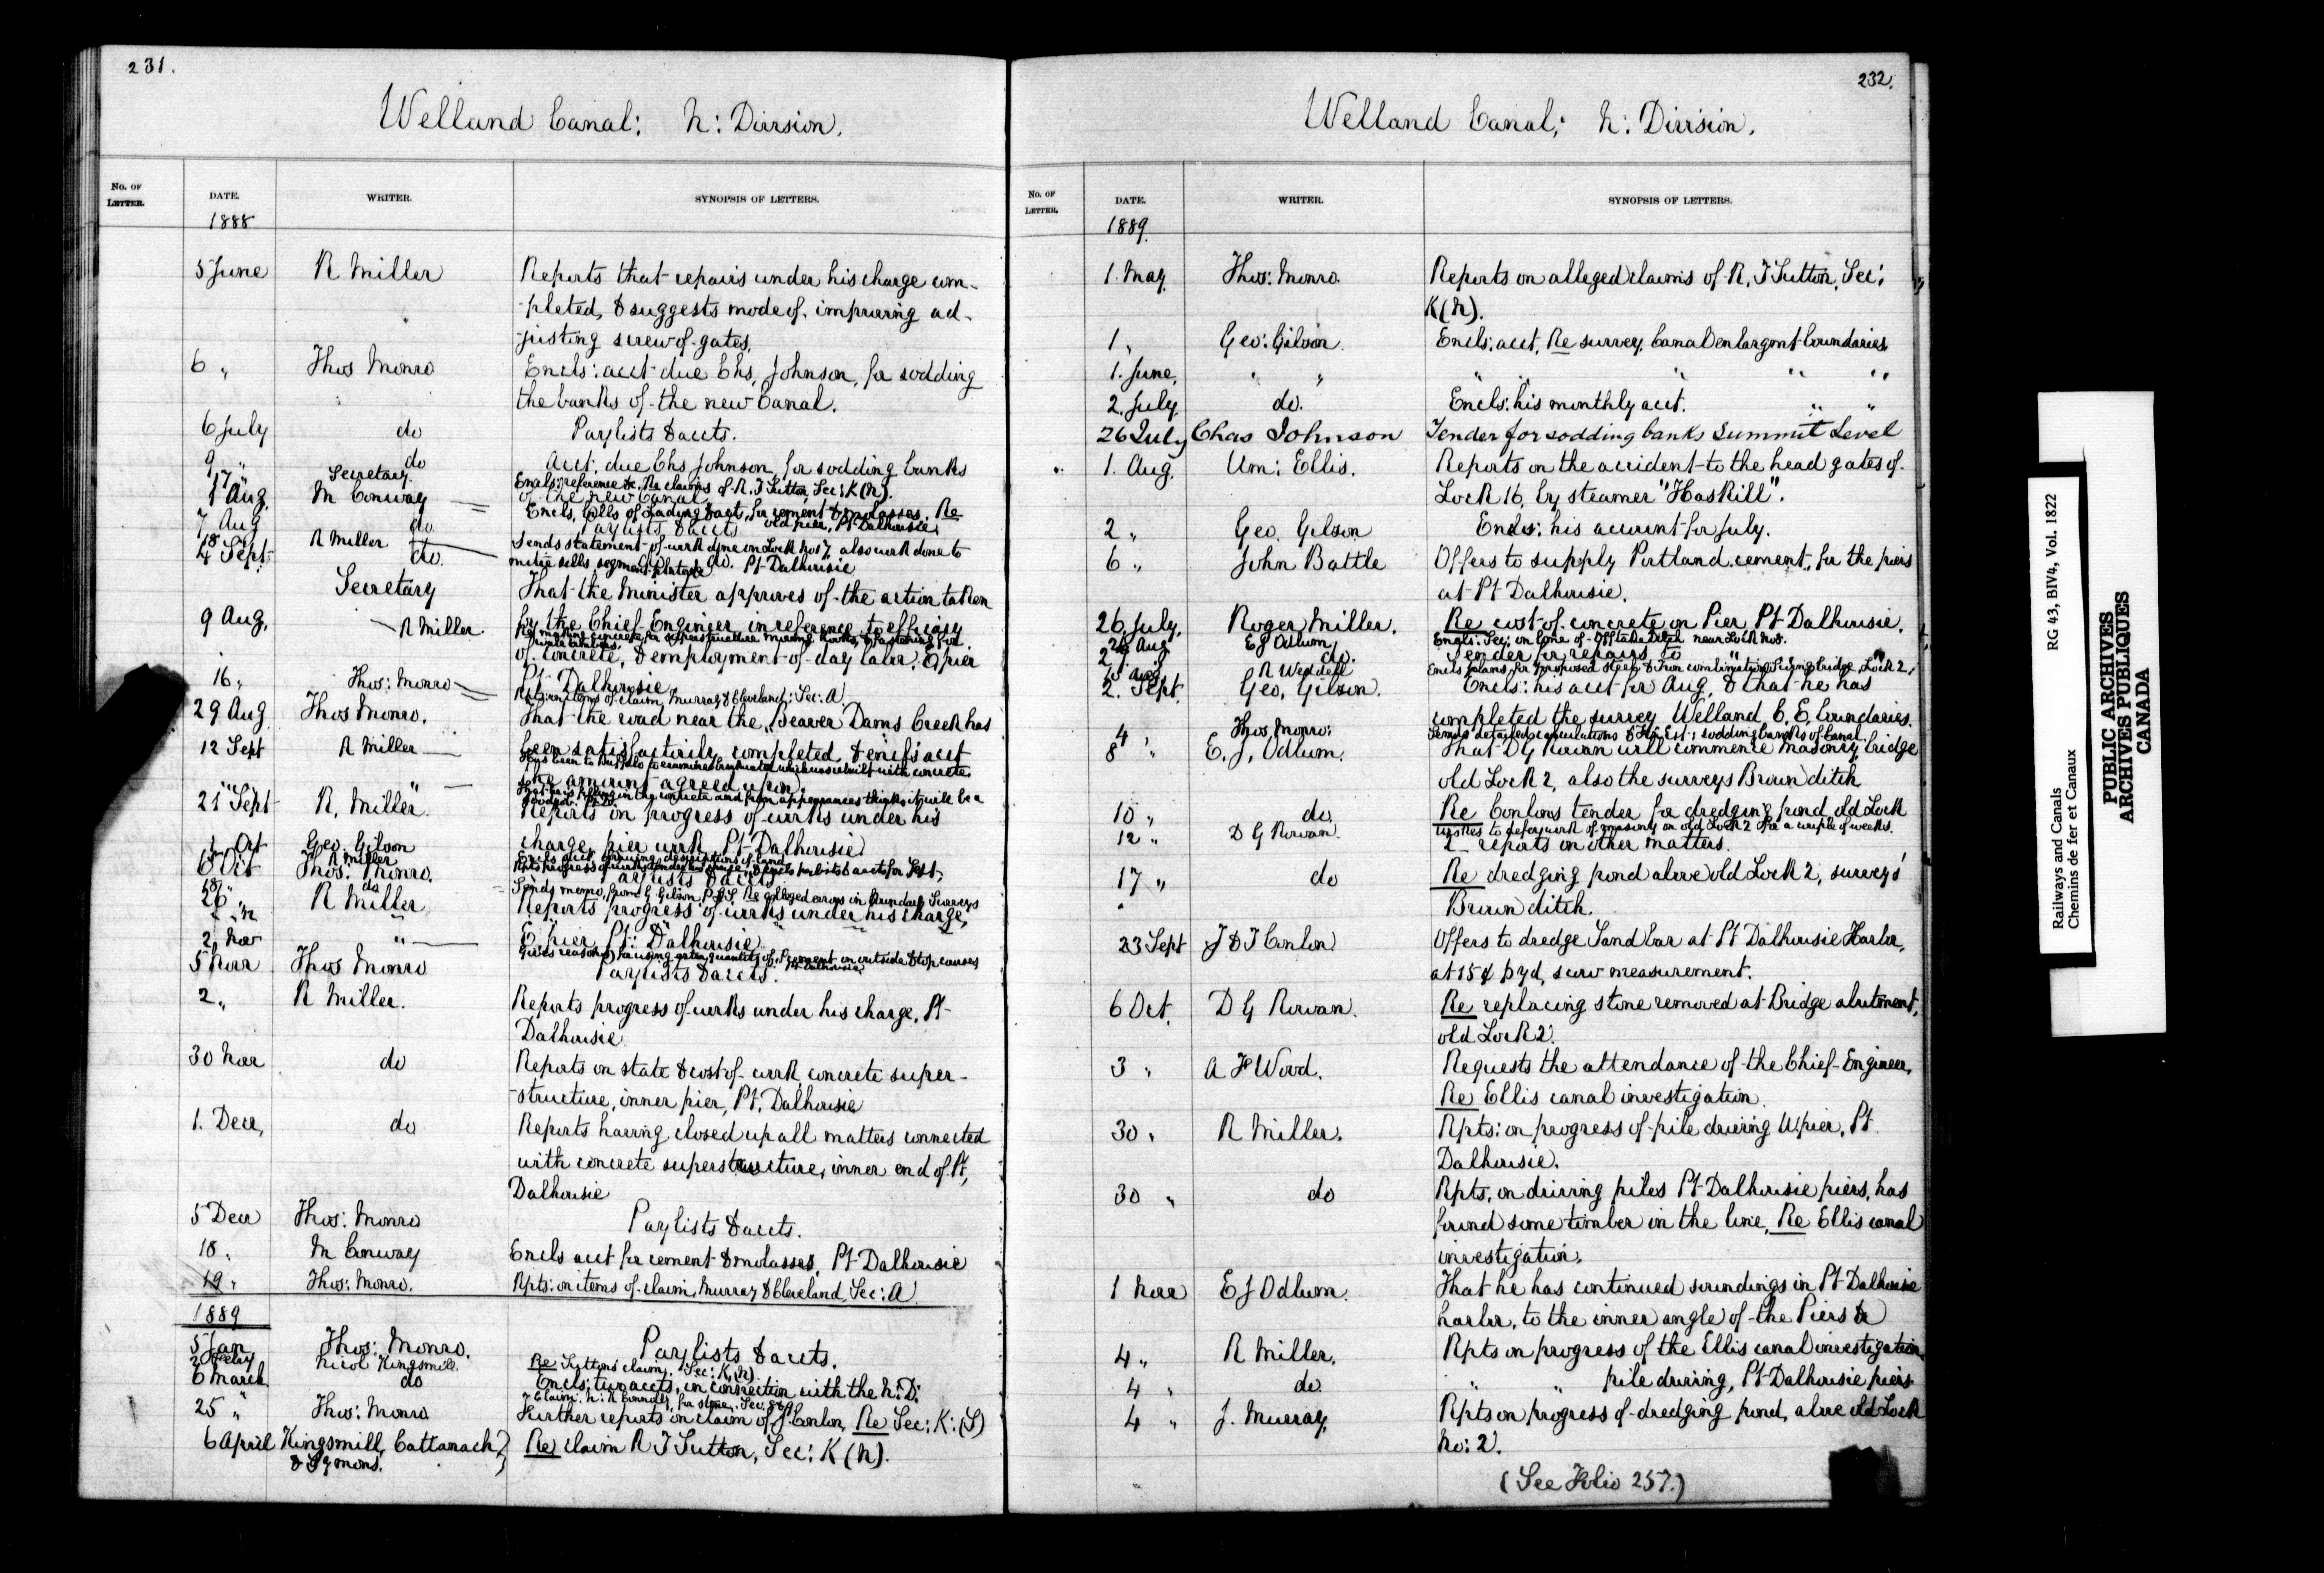 231.
Welland Canal: N: Division.
No. OF LETTER. DATE. WRITER. SYNOPSIS OF LETTERS.
1888
5 June R Miller Reports that repairs under his charge com-
-pleted, & suggests mode of improving ad-
-justing screw of gates.
6 " Thos Monro Encls: acct due Chs, Johnson, for sodding
the banks of the new Canal.
6 July do Paylists & accts.
9 " do Acct. due Chs Johnson, for sodding banks
17 " Secretary Encls: reference &c. Re claims of R. T Sutton, Sec: K (N).
of the new Canal
1 Aug. M Conway Encls, bills of Lading & acct, for cement & molasses. Re
old pier, Pt Dalhousie
7 Aug do Paylists & accts
18 " R Miller Sends statement of work done on Lock No 17, also work done to
mitre sills, segment plates &c
4 Sept do. do. do. Pt Dalhousie
Secretary That the Minister approves of the action taken
by the Chief Engineer, in reference to efficiency
9 Aug, R Miller. Re making concrete, for superstructure mooring hooks, & fastening for
of concrete, & employment of day labor, & pier
Pt Dalhousie
16 " Thos: Monro Rpts: on items of claim, Murray & Cleveland; Sec: A
29 Aug Thos Monro. That the road near the "Beaver Dams Creek has
been satisfactorily completed, & encls acct
12 Sept R Miller Has been to Buffalo to examine breakwater which was rebuilt with concrete
the amount agreed upon.
" " " That he is putting in the concrete and from appearances thinks it will be a
good job. Pt D.
21 Sept R, Miller Reports on progress of works under his
charge, pier work Pt Dalhousie
1 Oct Geo. Gibson Encls acct, drawing descriptions of land
R Miller Rpts progress of works under his charge, & encls paylists & accts for Sept,
6 Oct Thos: Monro. Paylists & accts
18 " do Sends memo, from G Gibson, P.L.S. Re alleged errors in Boundary Surveys
26 " R Miller Reports progress of works under his charge,
E. pier Pt: Dalhousie
2 Nov " Gives reasons for using extra quantity of P. cement on outside & top courses
Pt Dalhousie
5 Nov Thos Monro Paylists & accts.
2 " R Miller. Reports progress of works under his charge, Pt
Dalhousie
30 Nov do Reports on state & cost of work, concrete super-
-structure, inner pier, Pt. Dalhousie
1. Dec, do Reports having closed up all matters connected
with concrete superstructure, inner end of Pt,
Dalhousie
5 Dec Thos: Monro Paylists & accts.
18 " M Conway Encls acct for cement & molasses, Pt Dalhousie
19 " Thos: Monro. Rpts: on items of claim, Murray & Cleveland, Sec: A
1889
5 Jan Thos: Monro. Paylists & accts.
2 Feby Nicol Kingsmill. Re Suttons claim. Sec: K, (N)
6 March do Encls: two accts, in connection with the N: D:
& Claim. N: K Connolly, for stone, Sec:
25 " Thos: Monro Further reports on claim of J. Conlon, Re Sec: K: (S)
6 April Kingsmill, Cattanach Re claim R T Sutton, Sec: K (N).
& Symons.
232.
Welland Canal; N: Division.
No. OF LETTER. DATE. WRITER. SYNOPSIS OF LETTERS.
1889.
1. May Thos: Monro. Reports on alleged claims of R. T Sutton, Sec:
K (N).
1 " Geo: Gibson. Encls: acct, Re survey, Canal enlargmt boundaries
1. June, " " " " " " "
2. July do. Encls: his monthly acct. " "
26 July Chas Johnson Tender for sodding banks Summit Level
1. Aug. Wm: Ellis. Reports on the accident to the head gates of
Lock 16, by steamer "Haskill".
2 " Geo. Gibson Encls: his account for July.
6 " John Battle Offers to supply Portland cement, for the piers
at Pt Dalhousie.
26 July, Roger Miller. Re cost of concrete on Pier Pt Dalhousie.
E J Odlum Encls: Sec: on line of Offtake Ditch near Lock No 2.
do. Tender for repairs to " "
R Weddell Encls plans for proposed Steel & Iron combination Swing bridge, Lock 2,
2. Sept Geo, Gibson. Encls: his acct for Aug, & that he has
completed the survey Welland, C. E. boundaries.
4 " Thos, Monro: Sends detailed calculations & Est: sodding banks of Canal
8 " E. J, Odlum. That D G Rowan will commence masonry, bridge
old Lock 2, also the surveys Brown ditch
10 " do. Re Conlons tender for dredging pond old Lock
12 " D G Rowan Wishes to defer work of masonry on old Lock 2 for a couple of weeks.
& reports on other matters.
17 " do Re dredging pond above old Lock 2, surveys
Brown ditch.
23 Sept J & T Conlon Offers to dredge Sand bar at Pt Dalhousie Harbor,
at 15¢ p yd, scow measurement.
6 Oct, D G Rowan. Re replacing stone removed at Bridge abutment,
old Lock 2.
3 " A F Wood. Requests the attendance of the Chief Engineer,
Re Ellis canal investigation.
30 " R Miller. Rpts: on progress of pile driving W pier, Pt
Dalhousie.
30 " do Rpts, on driving piles Pt Dalhousie piers, has
found some timber in the line, Re Ellis canal
investigation.
1 Nov E J Odlum. That he has continued soundings in Pt Dalhousie
harbor, to the inner angle of the Piers &c
4 " R Miller. Rpts on progress of the Ellis canal investigation
4 " do. " " pile driving, Pt Dalhousie piers
4 " J. Murray, Rpts on progress of dredging pond, above old Lock
No: 2.
(See Folio 257.)
Railways and Canals RG 43, BIV4, Vol. 1822
Chemins de fer et Canaux
PUBLIC ARCHIVES
ARCHIVES PUBLIQUES
CANADA